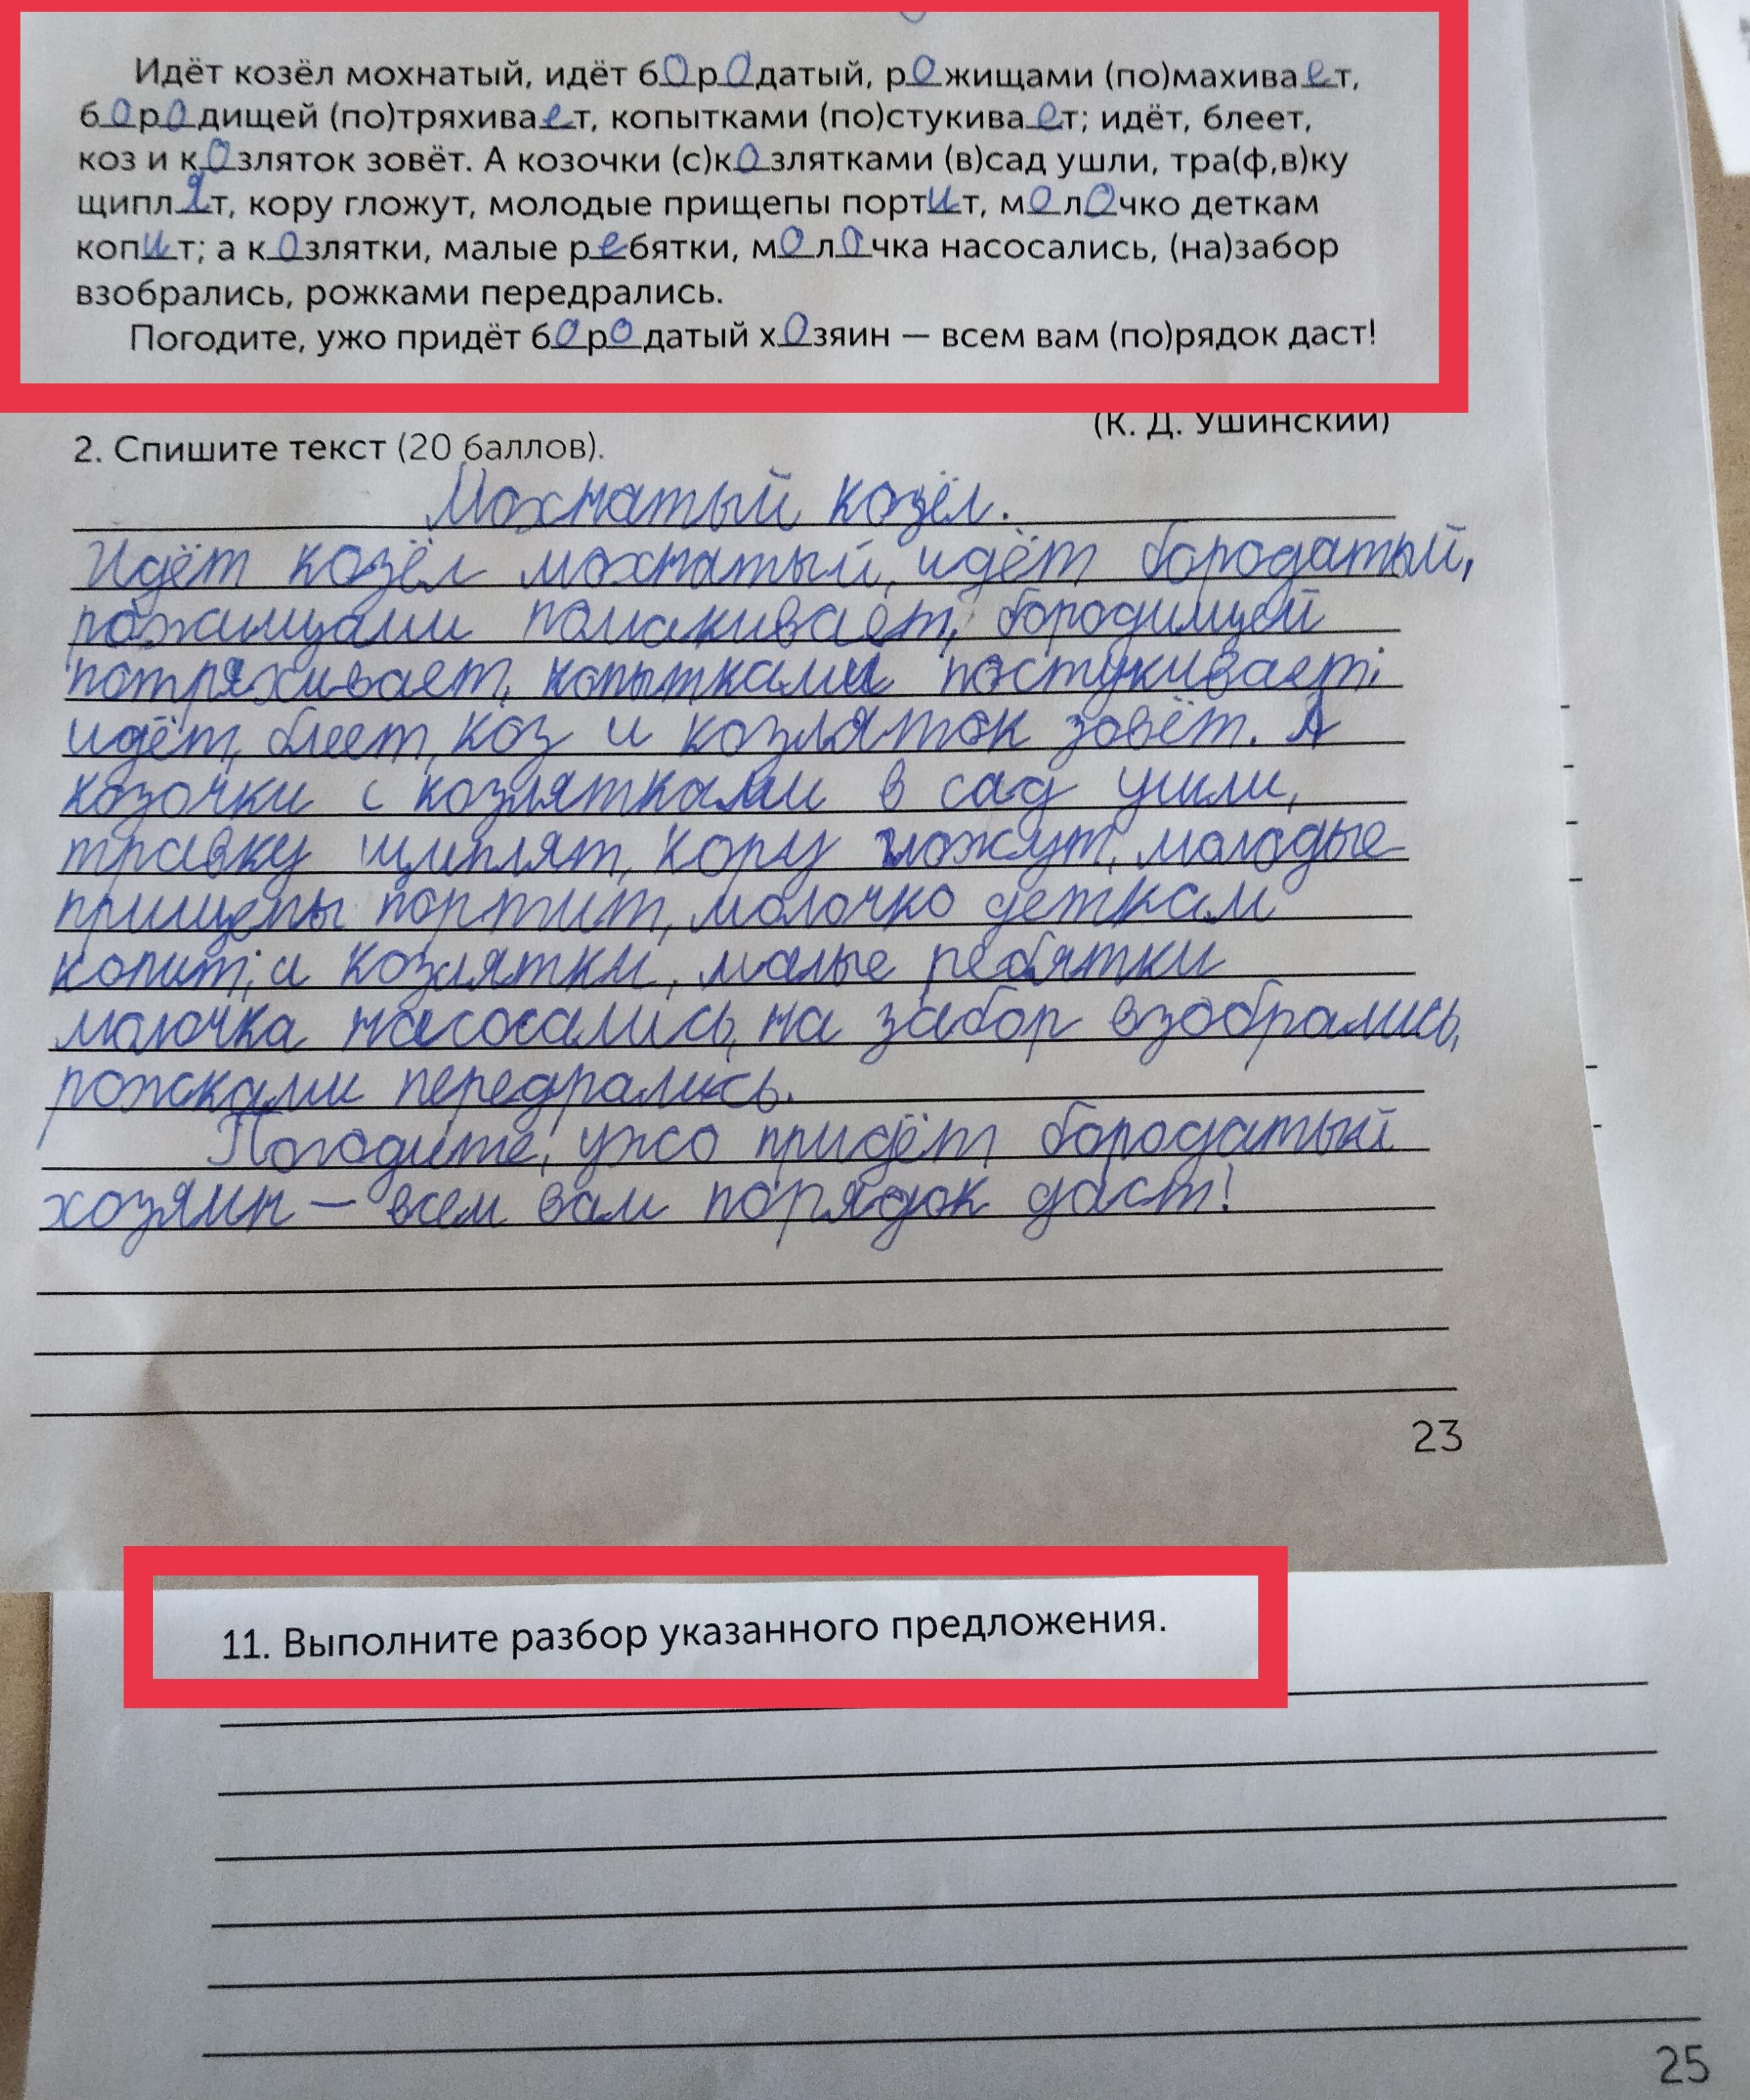 Идёт козёл мохнатый, идёт бородатый, рожищами (по)махивает,
бородищей (по)тряхивает, копытками (по)стукивает; идёт, блеет,
коз и козляток зовёт. А козочки (с)козлятками (в)сад ушли, тра(ф,в)ку
щиплят, кору гложут, молодые прищепы портит, молочко деткам
копит; а козлятки, малые ребятки, молочка насосались, (на)забор
взобрались, рожками передрались.
Погодите, ужо придёт бородатый хозяин — всем вам (по)рядок даст!
(К. Д. Ушинский)
2. Спишите текст (20 баллов).
Мохнатый козёл.
Идёт козёл мохнатый, идёт бородатый,
рожищами помахивает, бородищей
потряхивает, копытками постукивает;
идёт, блеет, коз и козляток зовёт. А
козочки с козлятками в сад ушли,
травку щиплят, кору гложут, молодые
прищепы портит, молочко деткам
копит; а козлятки, малые ребятки
молочка насосались, на забор взобрались,
рожками передрались.
Погодите, ужо придёт бородатый
хозяин — всем вам порядок даст!
23
11. Выполните разбор указанного предложения.
25